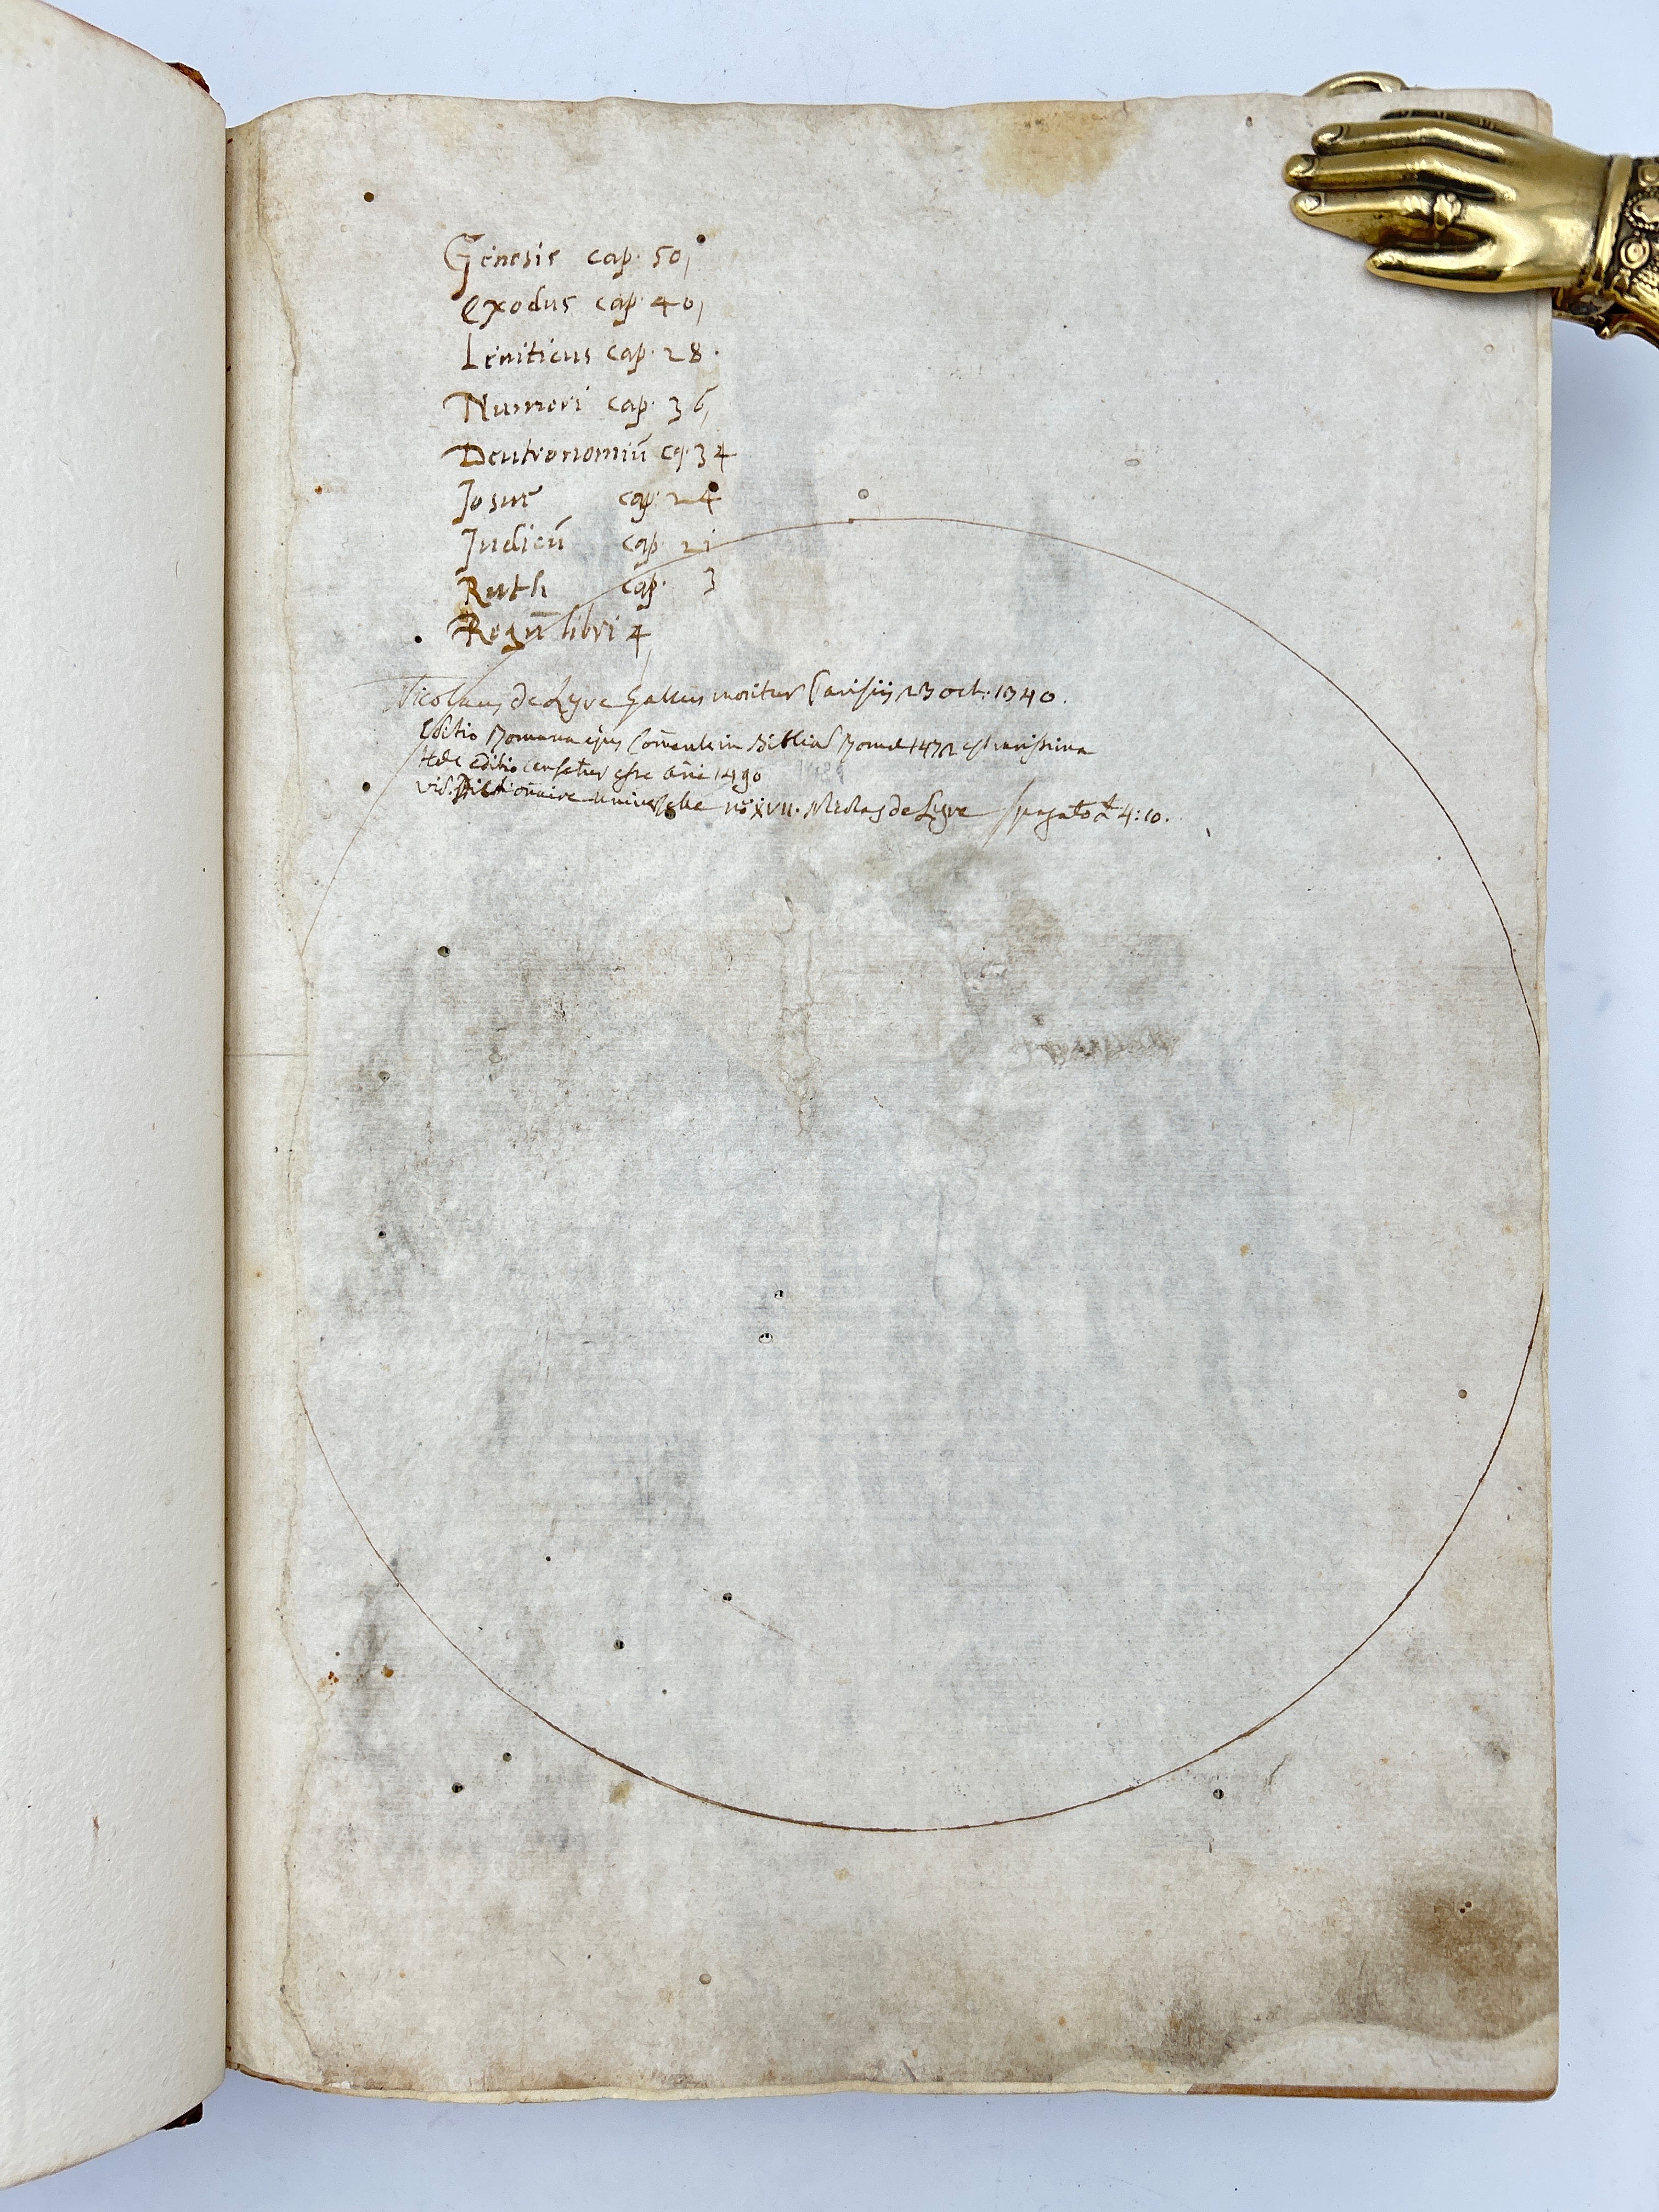 Genesis cap. 50,
exodus cap. 40,
Leviticus cap. 28.
Numeri cap. 36,
Deutronomiū ca. 34
Josue cap. 24
Judicū cap. 21
Ruth cap. 3
Regū libri 4
Nicolaus de Lyre Gallus moritur Parisiis 23 oct. 1340.
Editio Romana ejus Coment. in Biblia Romæ 1472 est rarissima
Hæc editio censetur esse Ann. 1490 1489
vid. Dictionaire universelle no. xvii. Nicolas de Lyre / pagato £ 4:10.